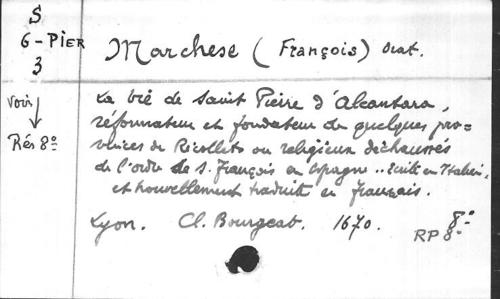 S
6-PIER
3
Marchese (François) Orat.
voir
Rés 8º
La vie de Saint Pierre d'Alcantara,
réformateur et fondateur de quelques pro=
vinces de Récollets ou religieux déchaussés
de l'ordre de S. François en Espagne .. Écrite en Italien,
et nouvellement traduite en français.
Lyon. Cl. Bourgeat. 1670. 8º
RP 8º